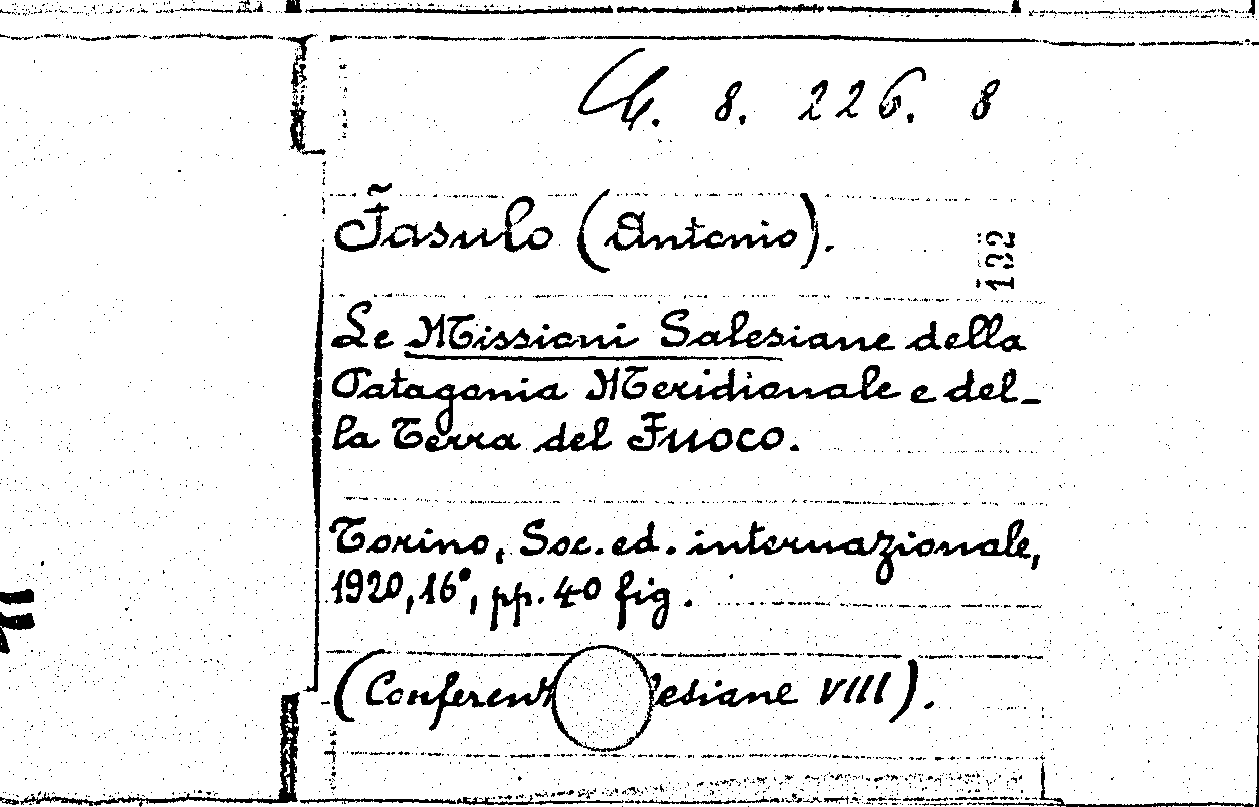 8. 226. 8
Fasulo (Antonio).
132
Le Missioni Salesiane della
Patagonia Meridionale e del-
la Terra del Fuoco.
Torino, Soc. ed. internazionale,
1920, 16°, pp. 40 fig.
(Conferenz lesiane VIII).